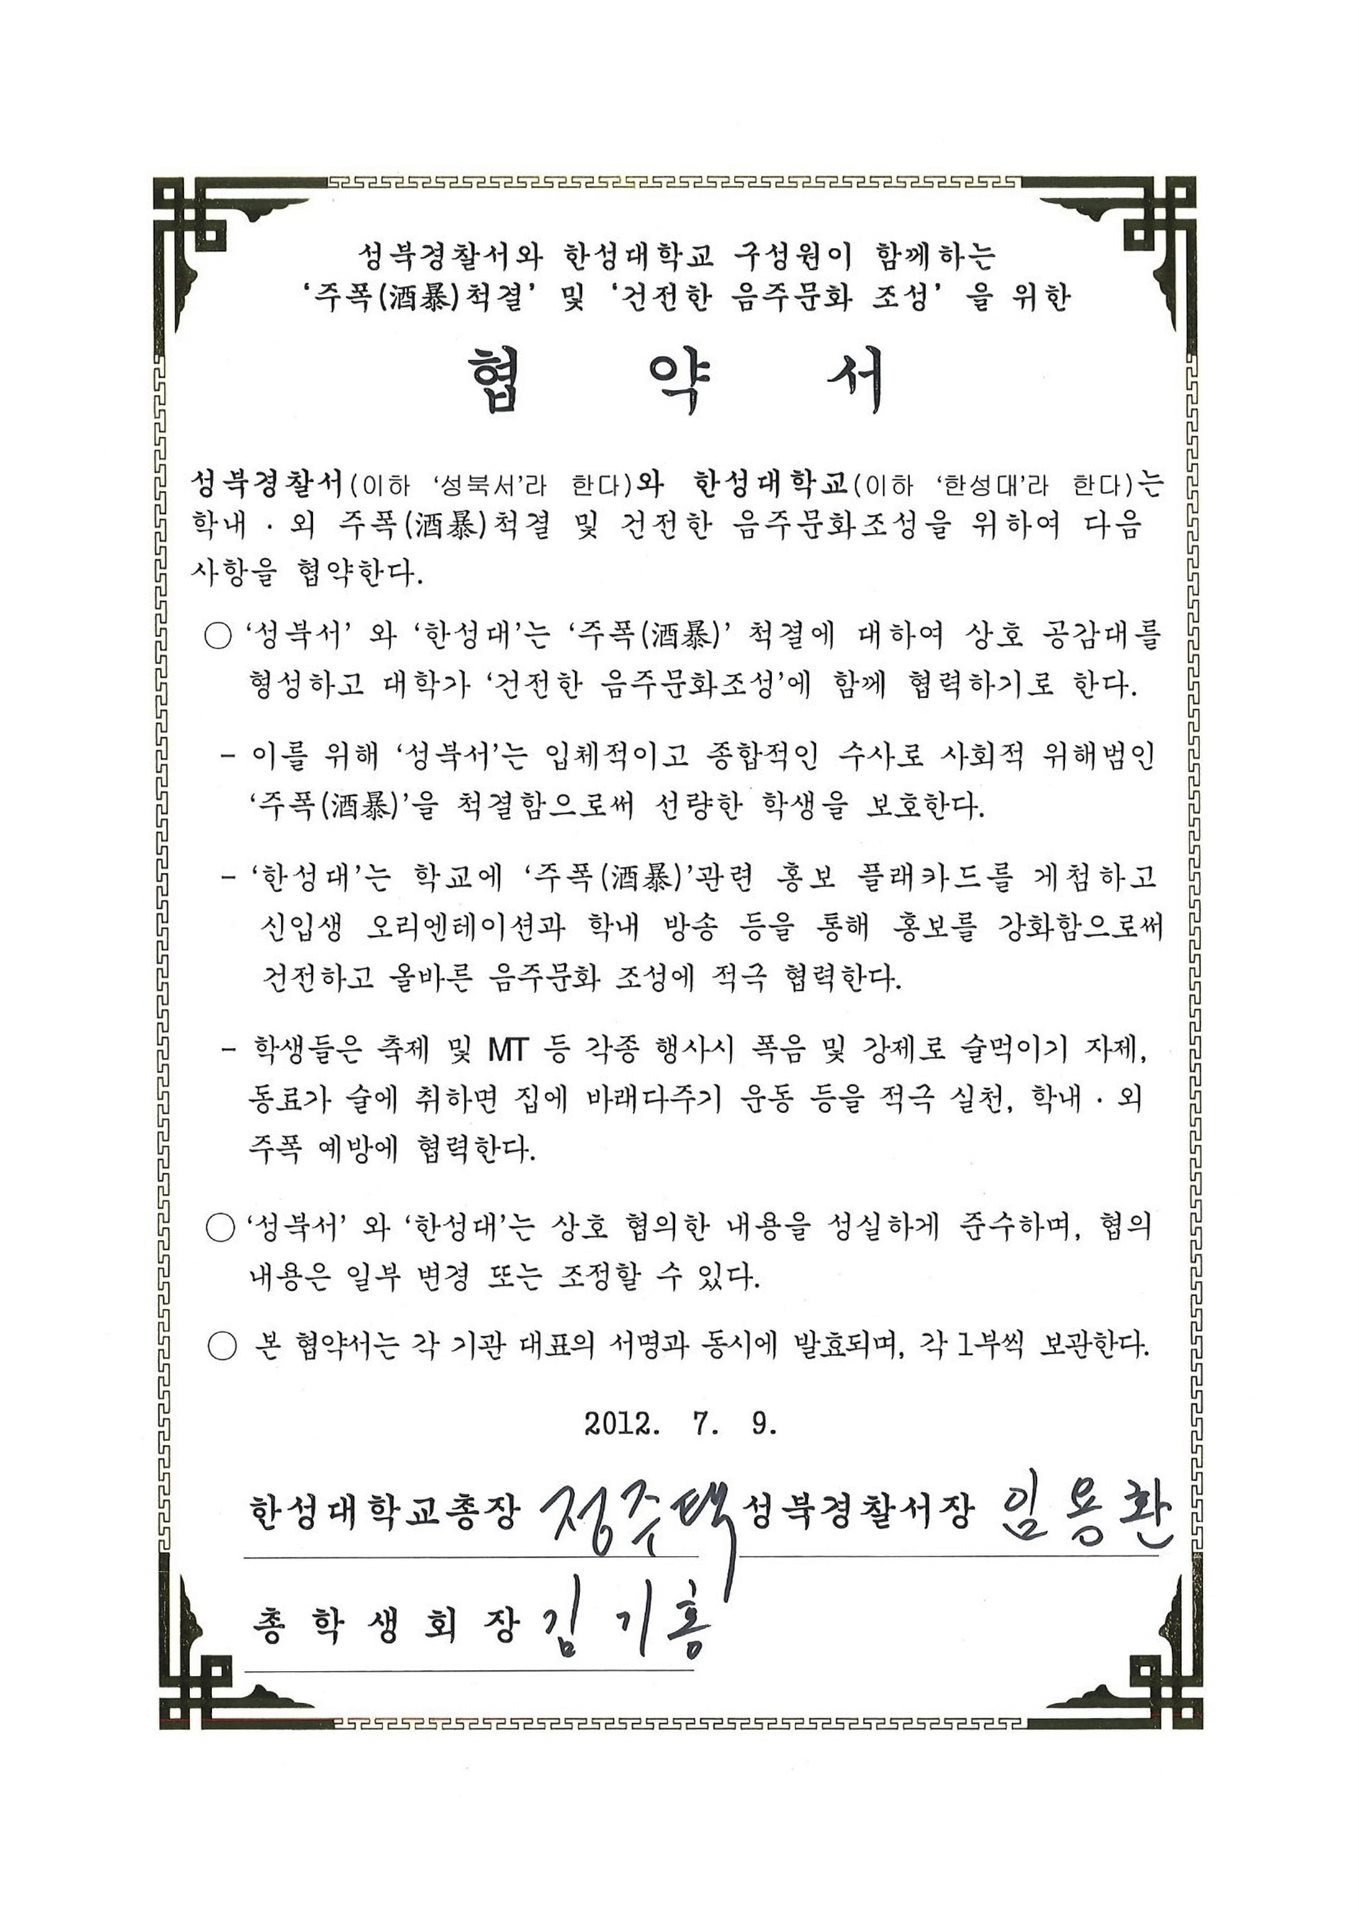 성북경찰서와 한성대학교 구성원이 함께하는
‘주폭(酒暴)척결’ 및 ‘건전한 음주문화 조성’ 을 위한
협 약 서
성북경찰서(이하 ‘성북서’라 한다)와 한성대학교(이하 ‘한성대’라 한다)는
학내 · 외 주폭(酒暴)척결 및 건전한 음주문화조성을 위하여 다음
사항을 협약한다.
○ ‘성북서’ 와 ‘한성대’는 ‘주폭(酒暴)’ 척결에 대하여 상호 공감대를
형성하고 대학가 ‘건전한 음주문화조성’에 함께 협력하기로 한다.
- 이를 위해 ‘성북서’는 입체적이고 종합적인 수사로 사회적 위해범인
‘주폭(酒暴)’을 척결함으로써 선량한 학생을 보호한다.
- ‘한성대’는 학교에 ‘주폭(酒暴)’관련 홍보 플래카드를 게첨하고
신입생 오리엔테이션과 학내 방송 등을 통해 홍보를 강화함으로써
건전하고 올바른 음주문화 조성에 적극 협력한다.
- 학생들은 축제 및 MT 등 각종 행사시 폭음 및 강제로 술먹이기 자제,
동료가 술에 취하면 집에 바래다주기 운동 등을 적극 실천, 학내 · 외
주폭 예방에 협력한다.
○ ‘성북서’ 와 ‘한성대’는 상호 협의한 내용을 성실하게 준수하며, 협의
내용은 일부 변경 또는 조정할 수 있다.
○ 본 협약서는 각 기관 대표의 서명과 동시에 발효되며, 각 1부씩 보관한다.
2012. 7. 9.
한성대학교총장 정주택 성북경찰서장 임용환
총학생회장 김기홍